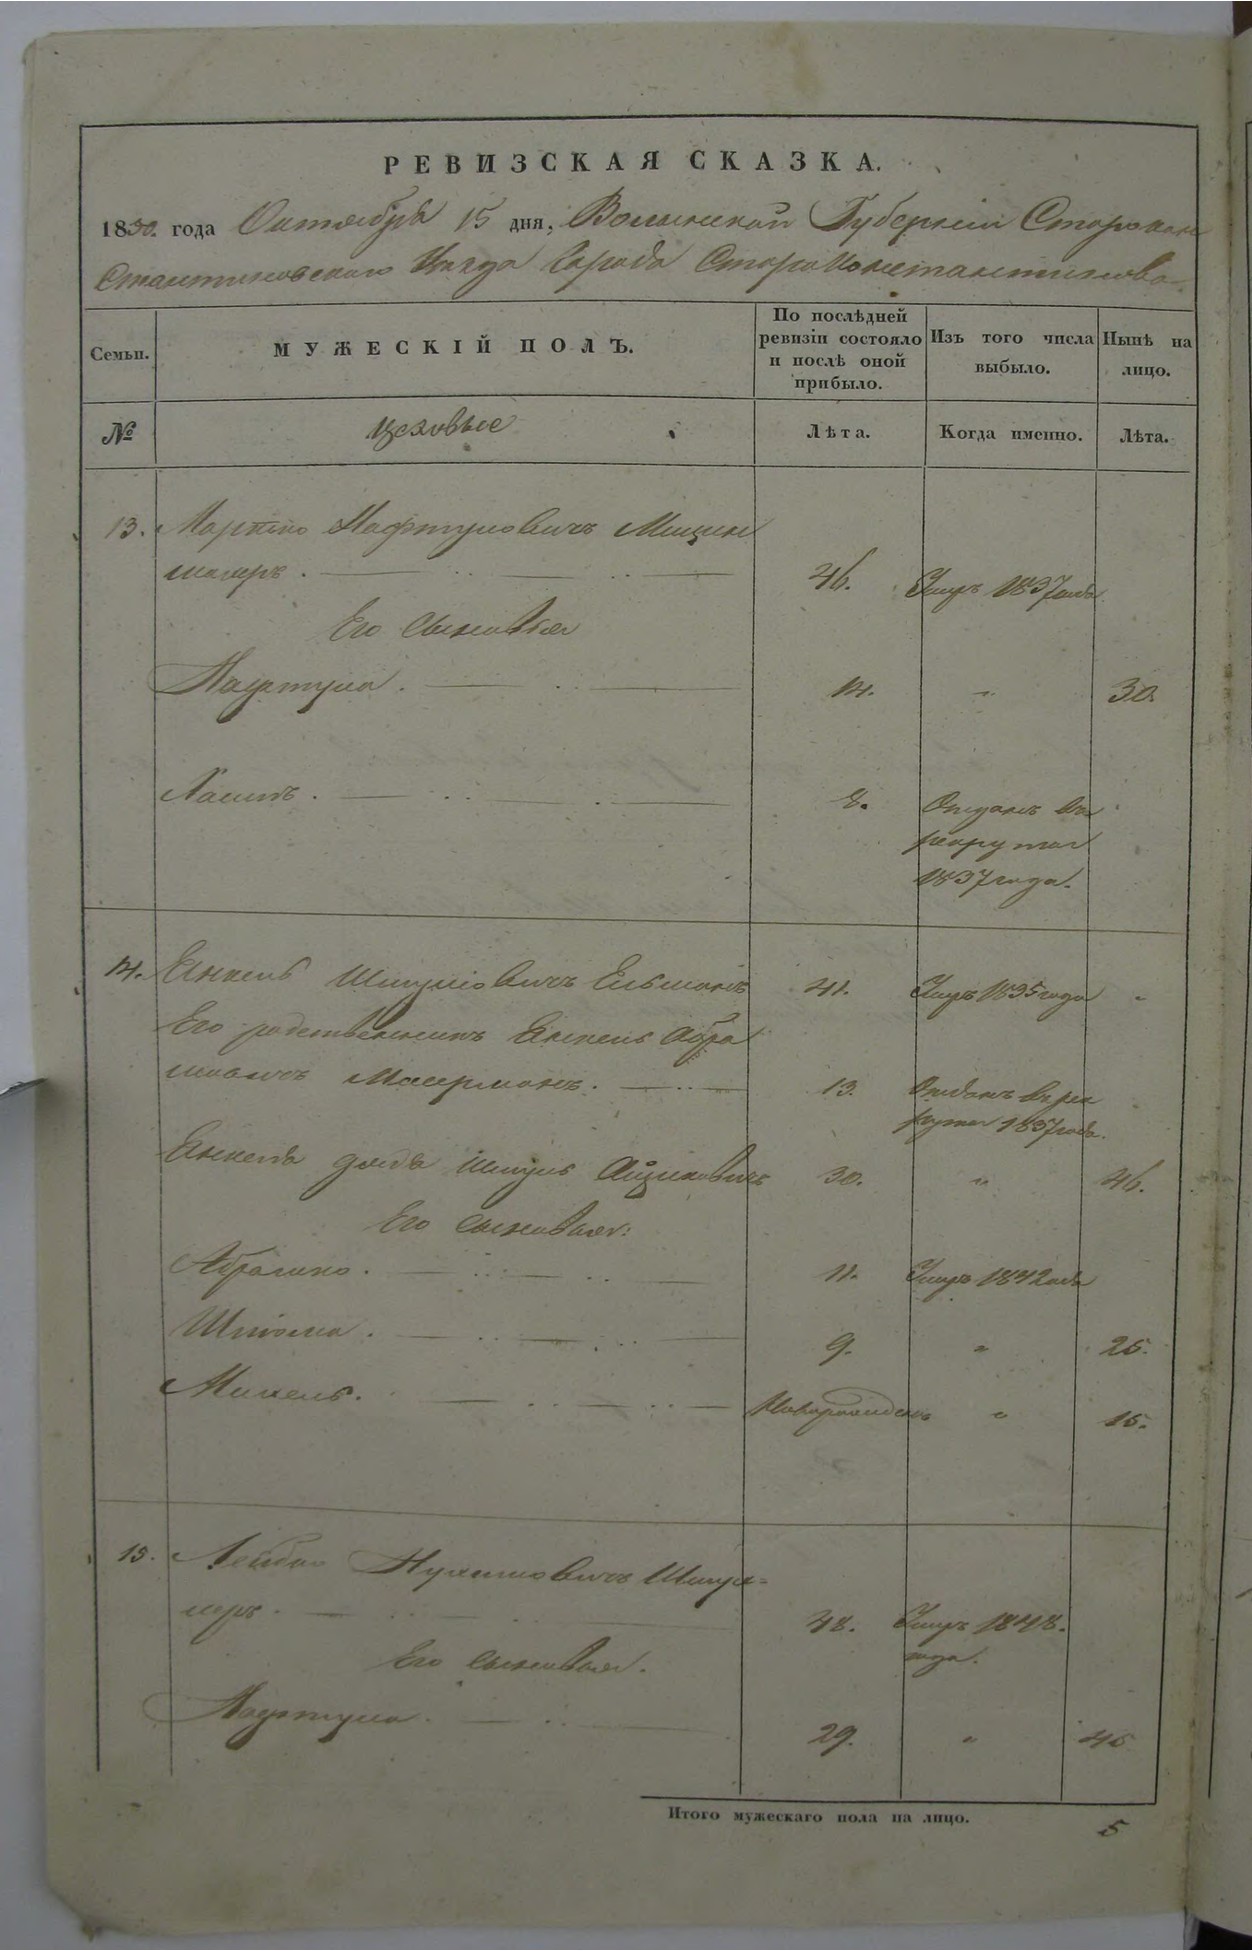 РЕВИЗСКАЯ СКАЗКА.
1850 года Октября 15 дня, Волынской Губерніи Старокон
стантиновского Уезда Города Староконстантинова
Семьи. МУЖЕСКІЙ ПОЛЪ. По послѣдней ревизіи состояло и послѣ оной прибыло. Изъ того числа выбыло. Нынѣ на лицо.
№ цеховые Лѣта. Когда именно. Лѣта.
13. Мортко Нафтуловичъ
46. Умръ 1837 года
Его сыновья
Нафтула. 14. " 30.
Хаимъ. 8. Отданъ въ
рекруты
1837 года.
14. Янкель Шмулiовичъ 41. Умръ 1835 года "
Его родственникъ Янкель Абра
мовичъ 13. Отданъ въ рек
руты 1837 года.
Янкеля дядя Шмуль Айзиковичъ 30. " 46.
Его сыновья:
Абрамко. 11. Умръ 1842 года
Шліома. 9. " 25.
Михель. Новорожденъ " 15.
15. Лейбко Нухимовичъ
48. Умръ 1848.
года.
Его сыновья.
Нафтула. 29. " 45
Итого мужескаго пола на лицо. 5